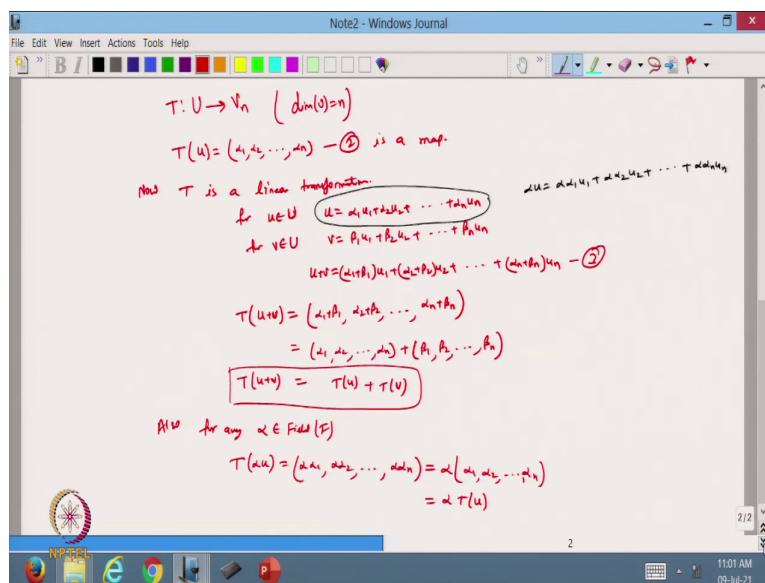 Note2 - Windows Journal
File Edit View Insert Actions Tools Help
B I
T: U → Vn ( dim(U)=n)
T(u) = (α1, α2, ..., αn) — ② is a map.
Now T is a linear transformation.
αu = αα1u1 + αα2u2 + ... + ααnun
for u∈U u = α1u1+α2u2+ ... +αnun
for v∈U v = β1u1 + β2u2 + ... + βnun
u+v = (α1+β1)u1+(α2+β2)u2+ ... + (αn+βn)un — ②
T(u+v) = (α1+β1, α2+β2, ..., αn+βn)
= (α1, α2, ..., αn) + (β1, β2, ..., βn)
T(u+v) = T(u) + T(v)
Also for any α ∈ Field (F)
T(αu) = (αα1, αα2, ..., ααn) = α(α1, α2, ..., αn)
= α T(u)
NPTEL
2/2
2
11:01 AM
09-Jul-21